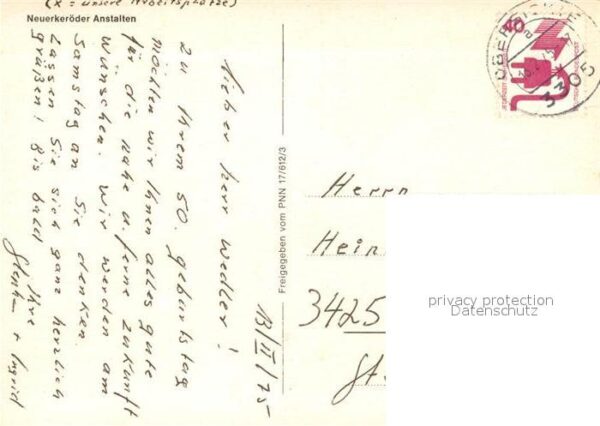 (x = unsere Arbeitsplätze)
Neuerkeröder Anstalten
13/II/75
Lieber Herr Wedler!
Zu Ihrem 50. Geburtstag
möchten wir Ihnen alles gute
für die nahe u. ferne Zukunft
wünschen. Wir werden am
Samstag an Sie denken.
Lassen Sie sich ganz herzlich
grüßen! Bis bald
Ihre
+ Ingrid
Freigegeben vom PNN 17/612/3
40
3305
Herrn
Hein
3425
St
privacy protection
Datenschutz